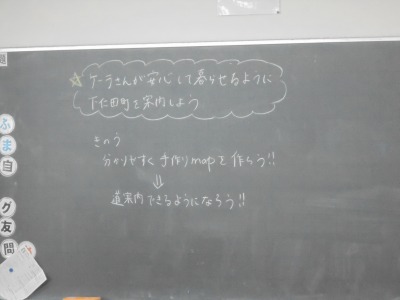 ☆ケーラさんが安心して暮らせるように
下仁田町を案内しよう
きのう
分かりやすく手作りmapを作ろう!!
⇓
道案内できるようになろう!!
ふ
ま
自
グ
友
問